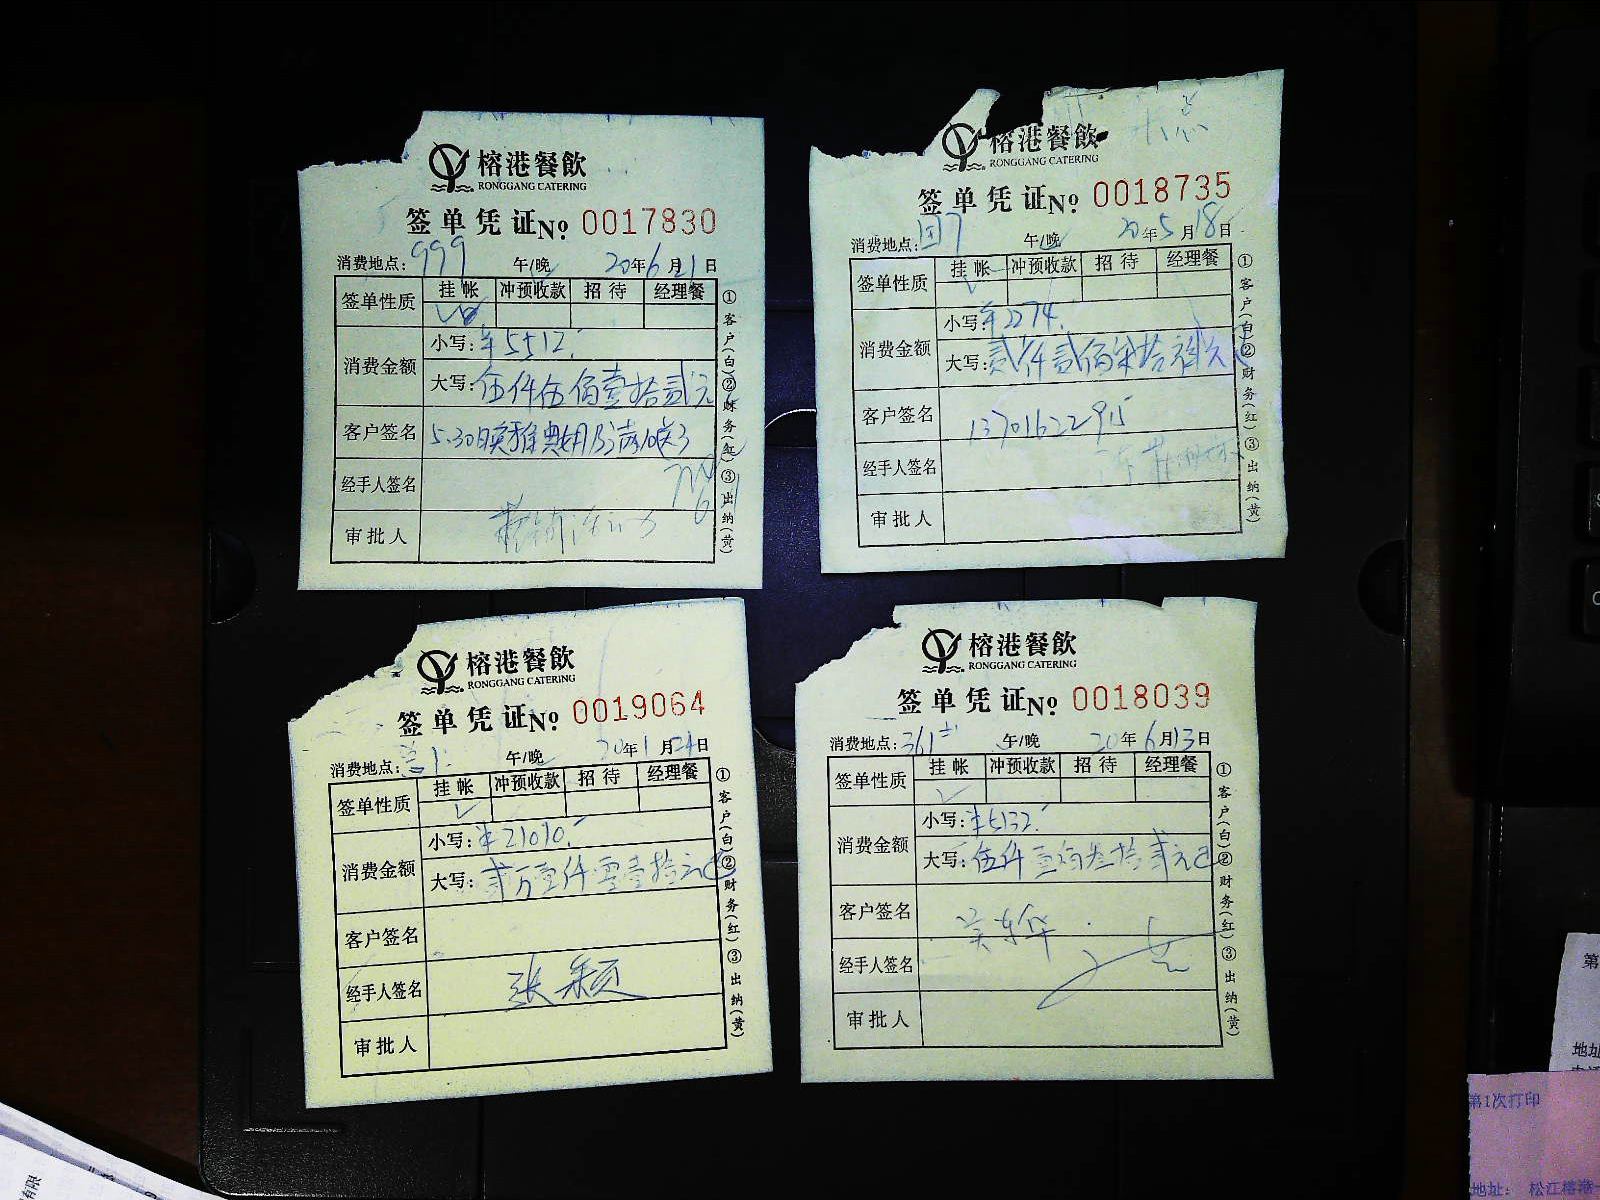 榕港餐飲
RONGGANG CATERING
签单凭证No. 0017830
消费地点: 999 午/晚 20年6月21日
签单性质 挂帐 冲预收款 招待 经理餐
消费金额 小写: ¥5512.
大写: 伍仟伍佰壹拾贰元
客户签名
经手人签名
审批人
①客户(白)②财务(红)③出纳(黄)
榕港餐飲
RONGGANG CATERING
签单凭证No. 0018735
消费地点: 午/晚 20年5月18日
签单性质 挂帐 冲预收款 招待 经理餐
消费金额 小写: ¥2274.
大写: 贰仟贰佰柒拾肆元
客户签名 13701622915
经手人签名
审批人
①客户(白)②财务(红)③出纳(黄)
榕港餐飲
RONGGANG CATERING
签单凭证No. 0019064
消费地点: 午/晚 20年1月21日
签单性质 挂帐 冲预收款 招待 经理餐
消费金额 小写: ¥21010.
大写: 贰万壹仟零壹拾元
客户签名
经手人签名 张颖
审批人
①客户(白)②财务(红)③出纳(黄)
榕港餐飲
RONGGANG CATERING
签单凭证No. 0018039
消费地点: 361 午/晚 20年6月13日
签单性质 挂帐 冲预收款 招待 经理餐
消费金额 小写: ¥5132.
大写: 伍仟壹佰叁拾贰元
客户签名 吴东华
经手人签名
审批人
①客户(白)②财务(红)③出纳(黄)
第
地址
第1次打印
地址: 松江榕港